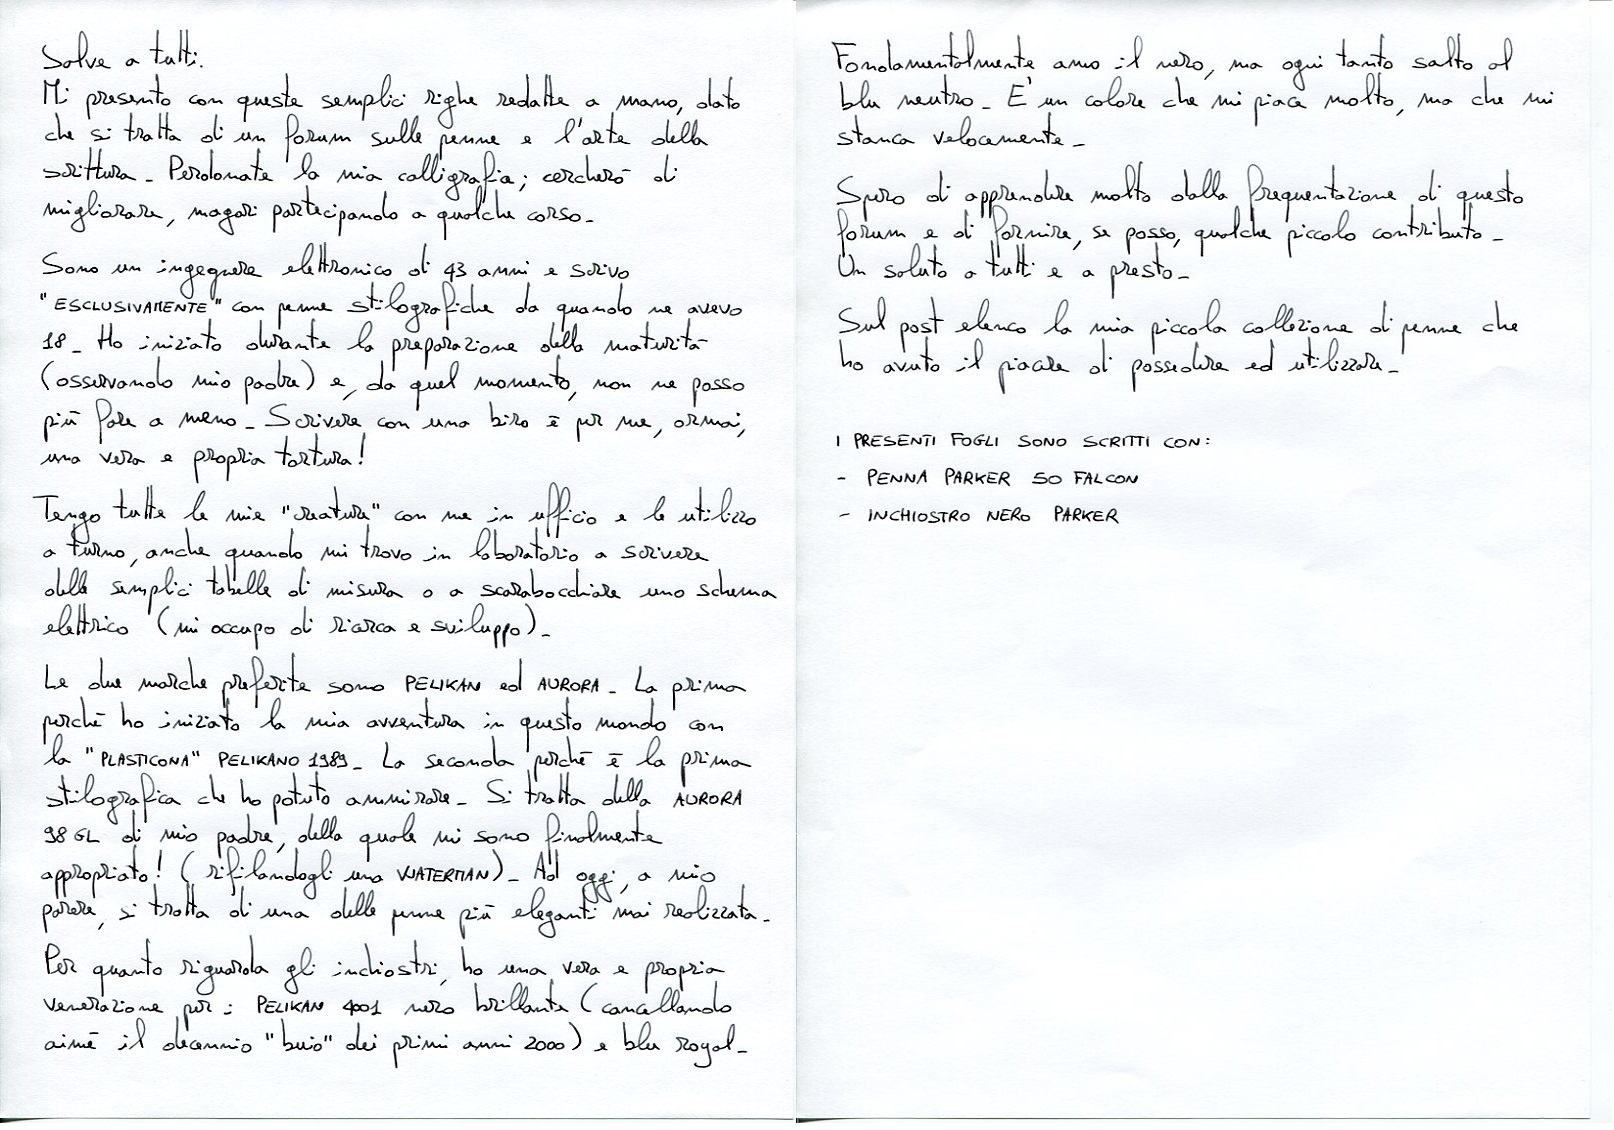 Salve a tutti.
Mi presento con queste semplici righe redatte a mano, dato
che si tratta di un forum sulle penne e l'arte della
scrittura - Perdonate la mia calligrafia; cercherò di
migliorare, magari partecipando a qualche corso -
Sono un ingegnere elettronico di 43 anni e scrivo
"ESCLUSIVAMENTE" con penne stilografiche da quando ne avevo
18 - Ho iniziato durante la preparazione della maturità
(osservando mio padre) e, da quel momento, non ne posso
più fare a meno - Scrivere con una biro è per me, ormai,
una vera e propria tortura!
Tengo tutte le mie "creature" con me in ufficio e le utilizzo
a turno, anche quando mi trovo in laboratorio a scrivere
delle semplici tabelle di misura o a scarabocchiare uno schema
elettrico (mi occupo di ricerca e sviluppo) -
Le due marche preferite sono PELIKAN ed AURORA - La prima
perchè ho iniziato la mia avventura in questo mondo con
la "PLASTICONA" PELIKANO 1989 - La seconda perchè è la prima
stilografica che ho potuto ammirare - Si tratta della AURORA
98 GL di mio padre, della quale mi sono finalmente
appropriato! (rifilandogli una WATERMAN) - Ad oggi, a mio
parere, si tratta di una delle penne più eleganti mai realizzata -
Per quanto riguarda gli inchiostri, ho una vera e propria
venerazione per: PELIKAN 4001 nero brillante (cancellando
aimè il decennio "buio" dei primi anni 2000) e blu royal -
Fondamentalmente amo il nero, ma ogni tanto salto al
blu neutro - E' un colore che mi piace molto, ma che mi
stanca velocemente -
Spero di apprendere molto dalla frequentazione di questo
forum e di fornire, se posso, qualche piccolo contributo -
Un saluto a tutti e a presto -
Sul post elenco la mia piccola collezione di penne che
ho avuto il piacere di possedere ed utilizzare -
I PRESENTI FOGLI SONO SCRITTI CON:
- PENNA PARKER 50 FALCON
- INCHIOSTRO NERO PARKER